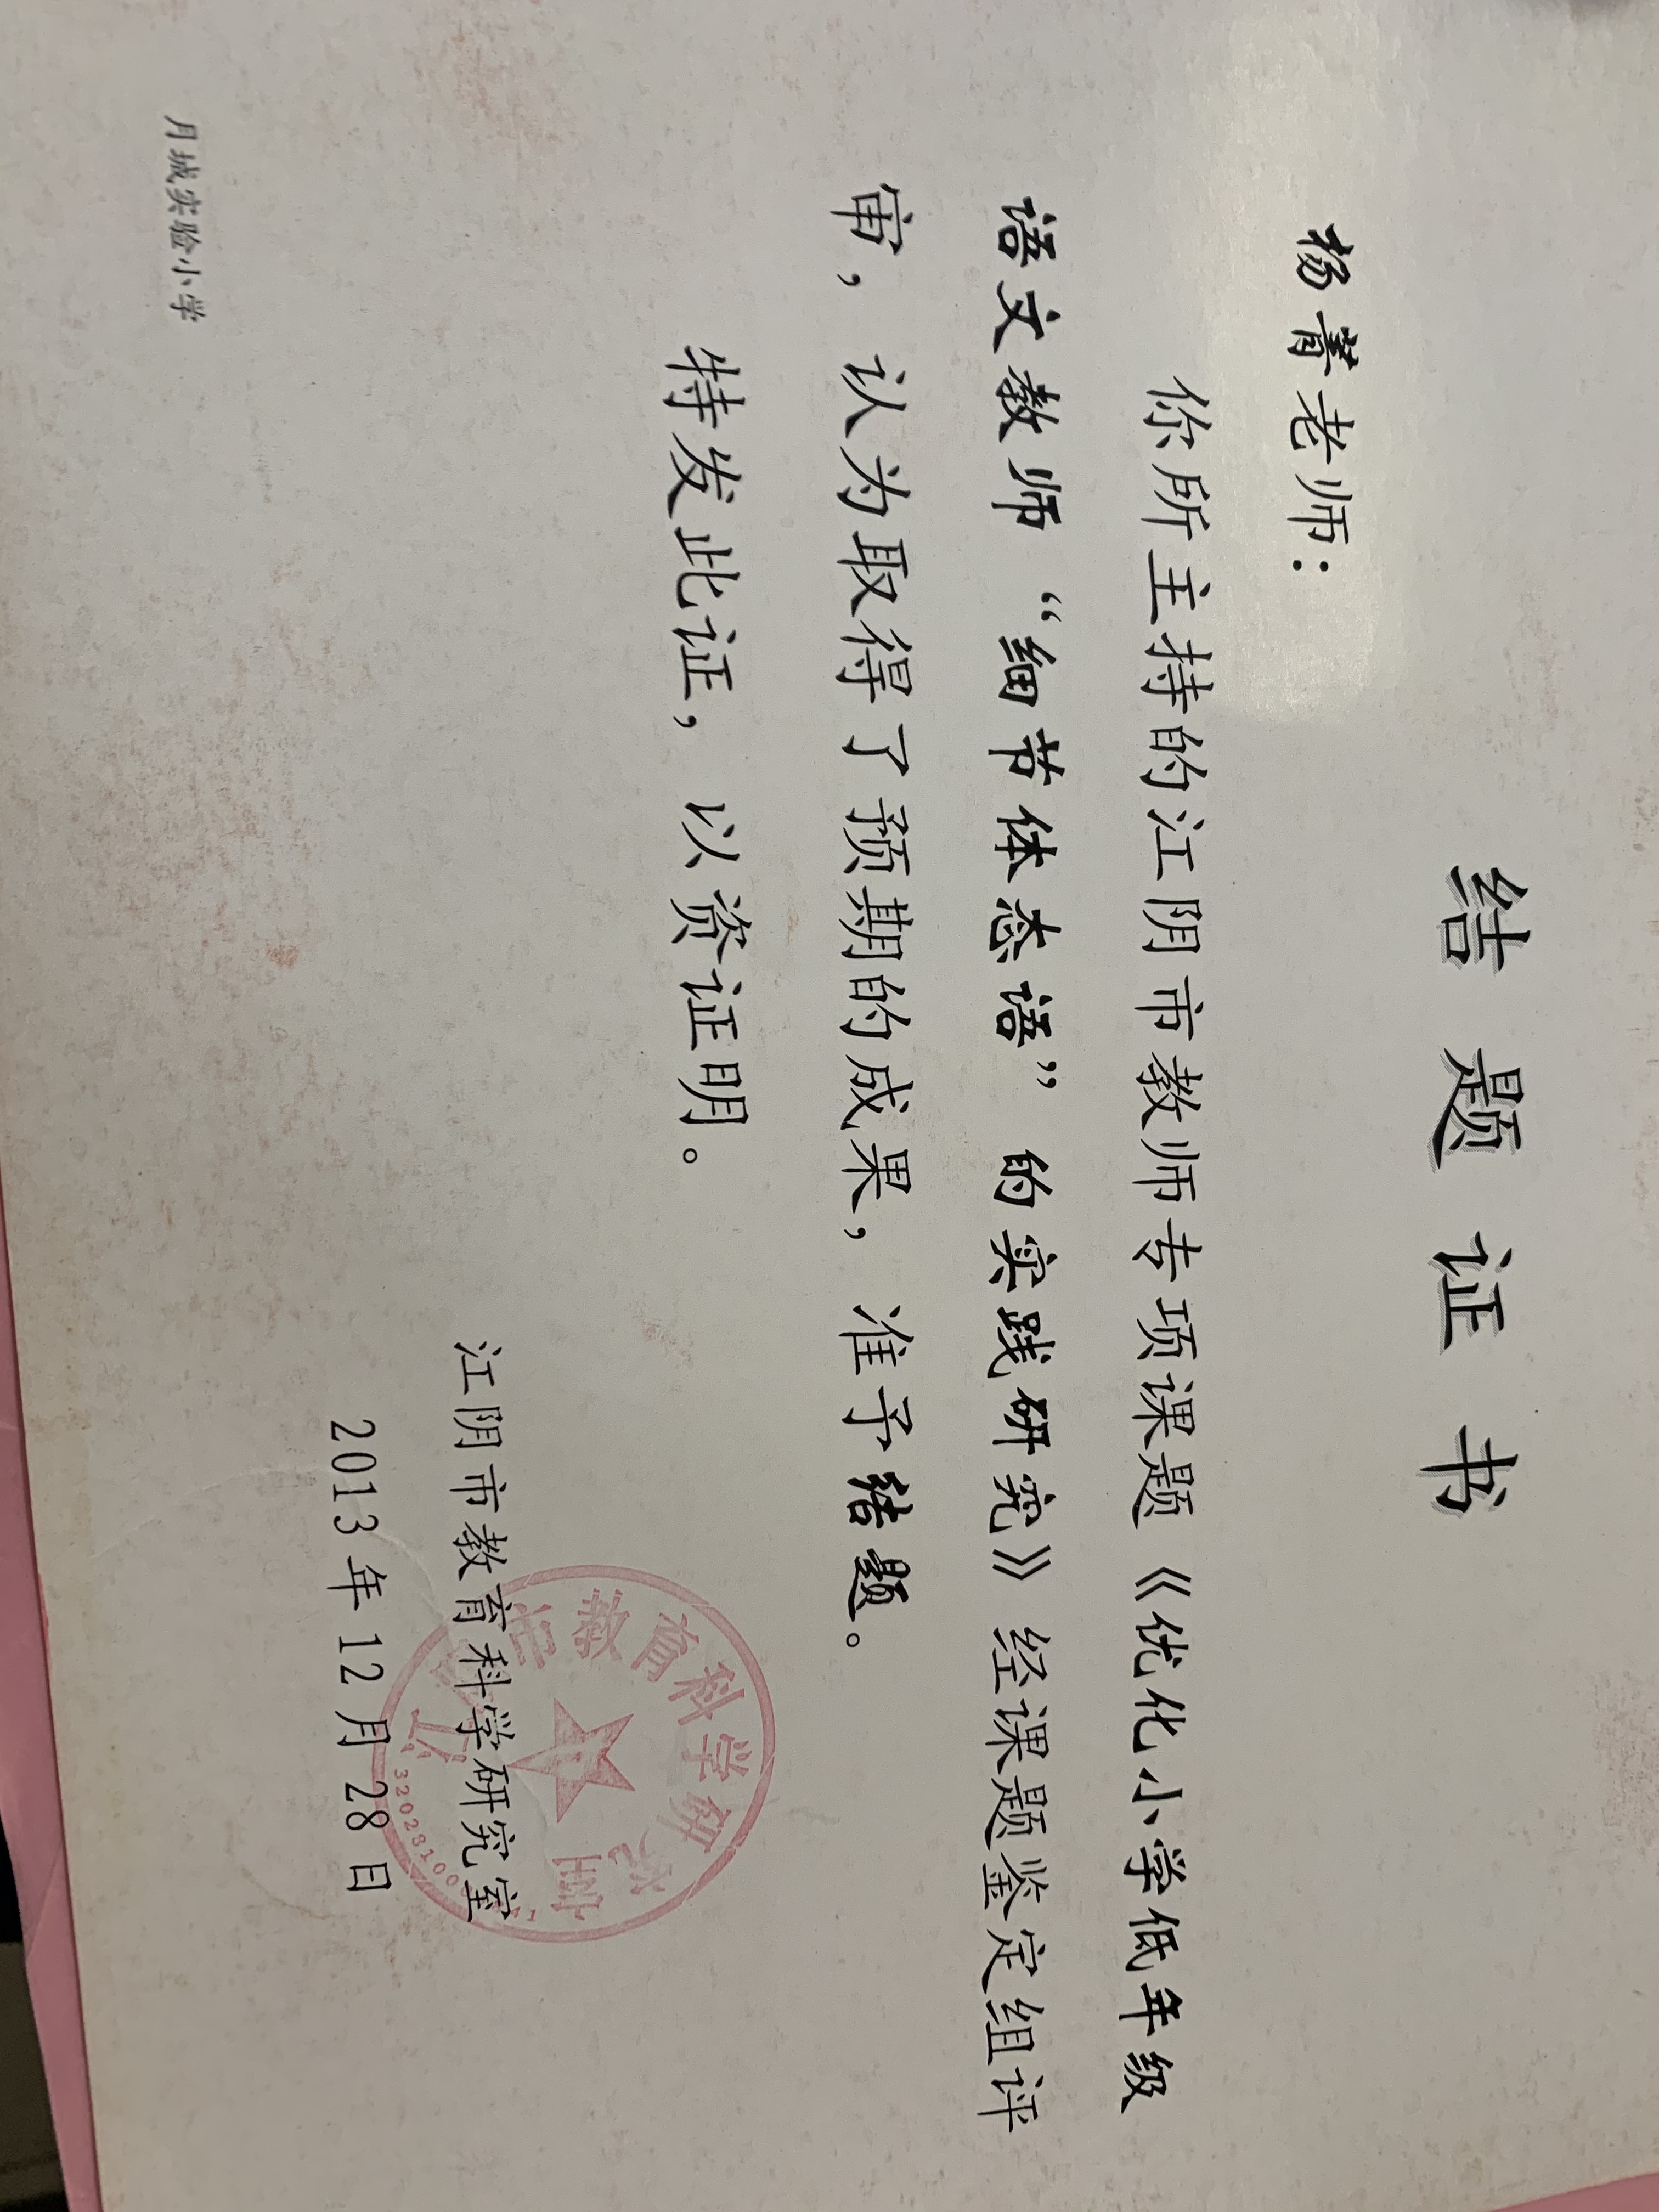 结题证书
杨菁老师：
你所主持的江阴市教师专项课题《优化小学低年级
语文教师“细节体态语”的实践研究》经课题鉴定组评
审，认为取得了预期的成果，准予结题。
特发此证，以资证明。
江阴市教育科学研究室
2013年12月28日
月城实验小学
江阴市教育科学研究室